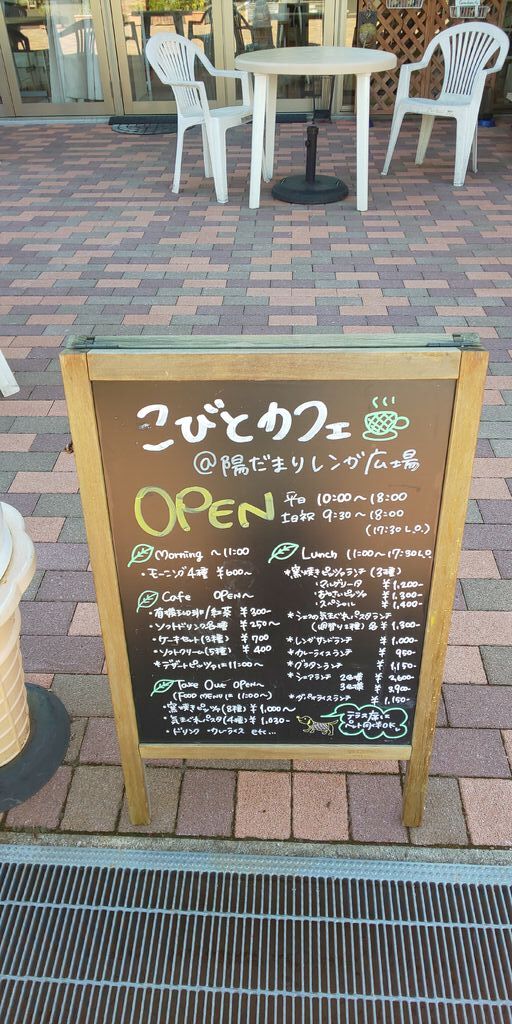 こびとカフェ
@陽だまりレンガ広場
OPEN
平日 10:00〜18:00
土日祝 9:30〜18:00
(17:30 L.O.)
Morning 〜11:00
・モーニング4種 ¥600〜
Cafe OPEN〜
有機珈琲/紅茶 ¥300-
・ソフトドリンク各種 ¥250〜
・ケーキセット(3種) ¥700
・ソフトクリーム(5種) ¥400
*デザートピッツァは11:00〜
Take Out OPEN〜
(FOOD MENUは11:00〜)
・窯焼きピッツァ(8種) ¥1,000〜
・気まぐれパスタ(4種) ¥1,030-
・ドリンク カレーライス etc...
Lunch 11:00〜17:30 L.O
*窯焼きピッツァランチ(3種)
・マルゲリータ ¥1,200-
¥1,300-
・スペシャル ¥1,400-
*シェフの気まぐれパスタランチ
(週替り2種)各 ¥1,300-
*レンガサンドランチ ¥1,000-
*カレーライスランチ ¥950-
*グラタンランチ ¥1,150-
*シェアランチ 2名様 ¥2,600-
3名様 ¥3,900-
ランチ ¥1,150-
テラス席は
ペット同伴OK